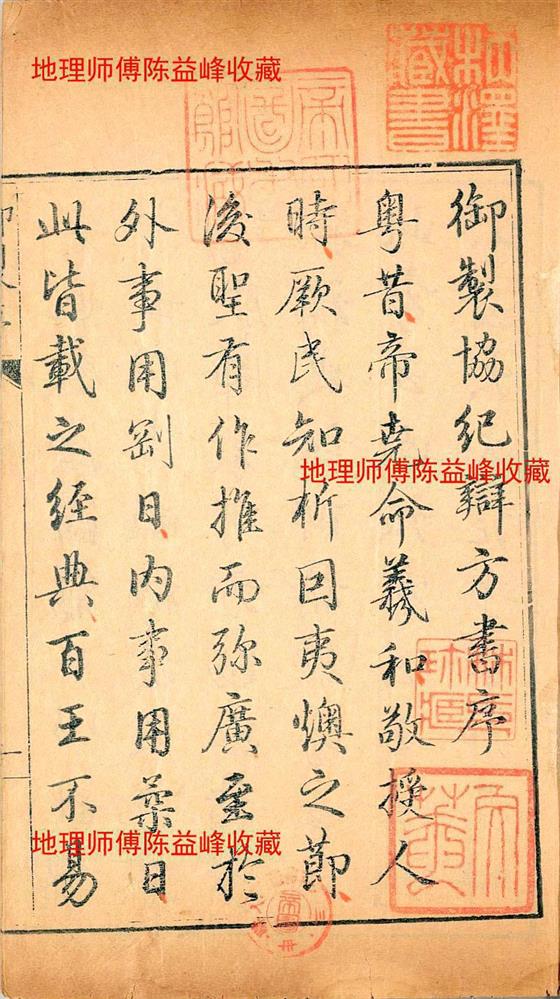 御製協紀辯方書序
粤昔帝堯命羲和敬授人
時厥民知析因夷燠之節
後聖有作推而弥廣至於
外事用剛日內事用柔日
此皆載之经典百王不易
地理师傅陈益峰收藏
地理师傅陈益峰收藏
地理师傅陈益峰收藏
藏書